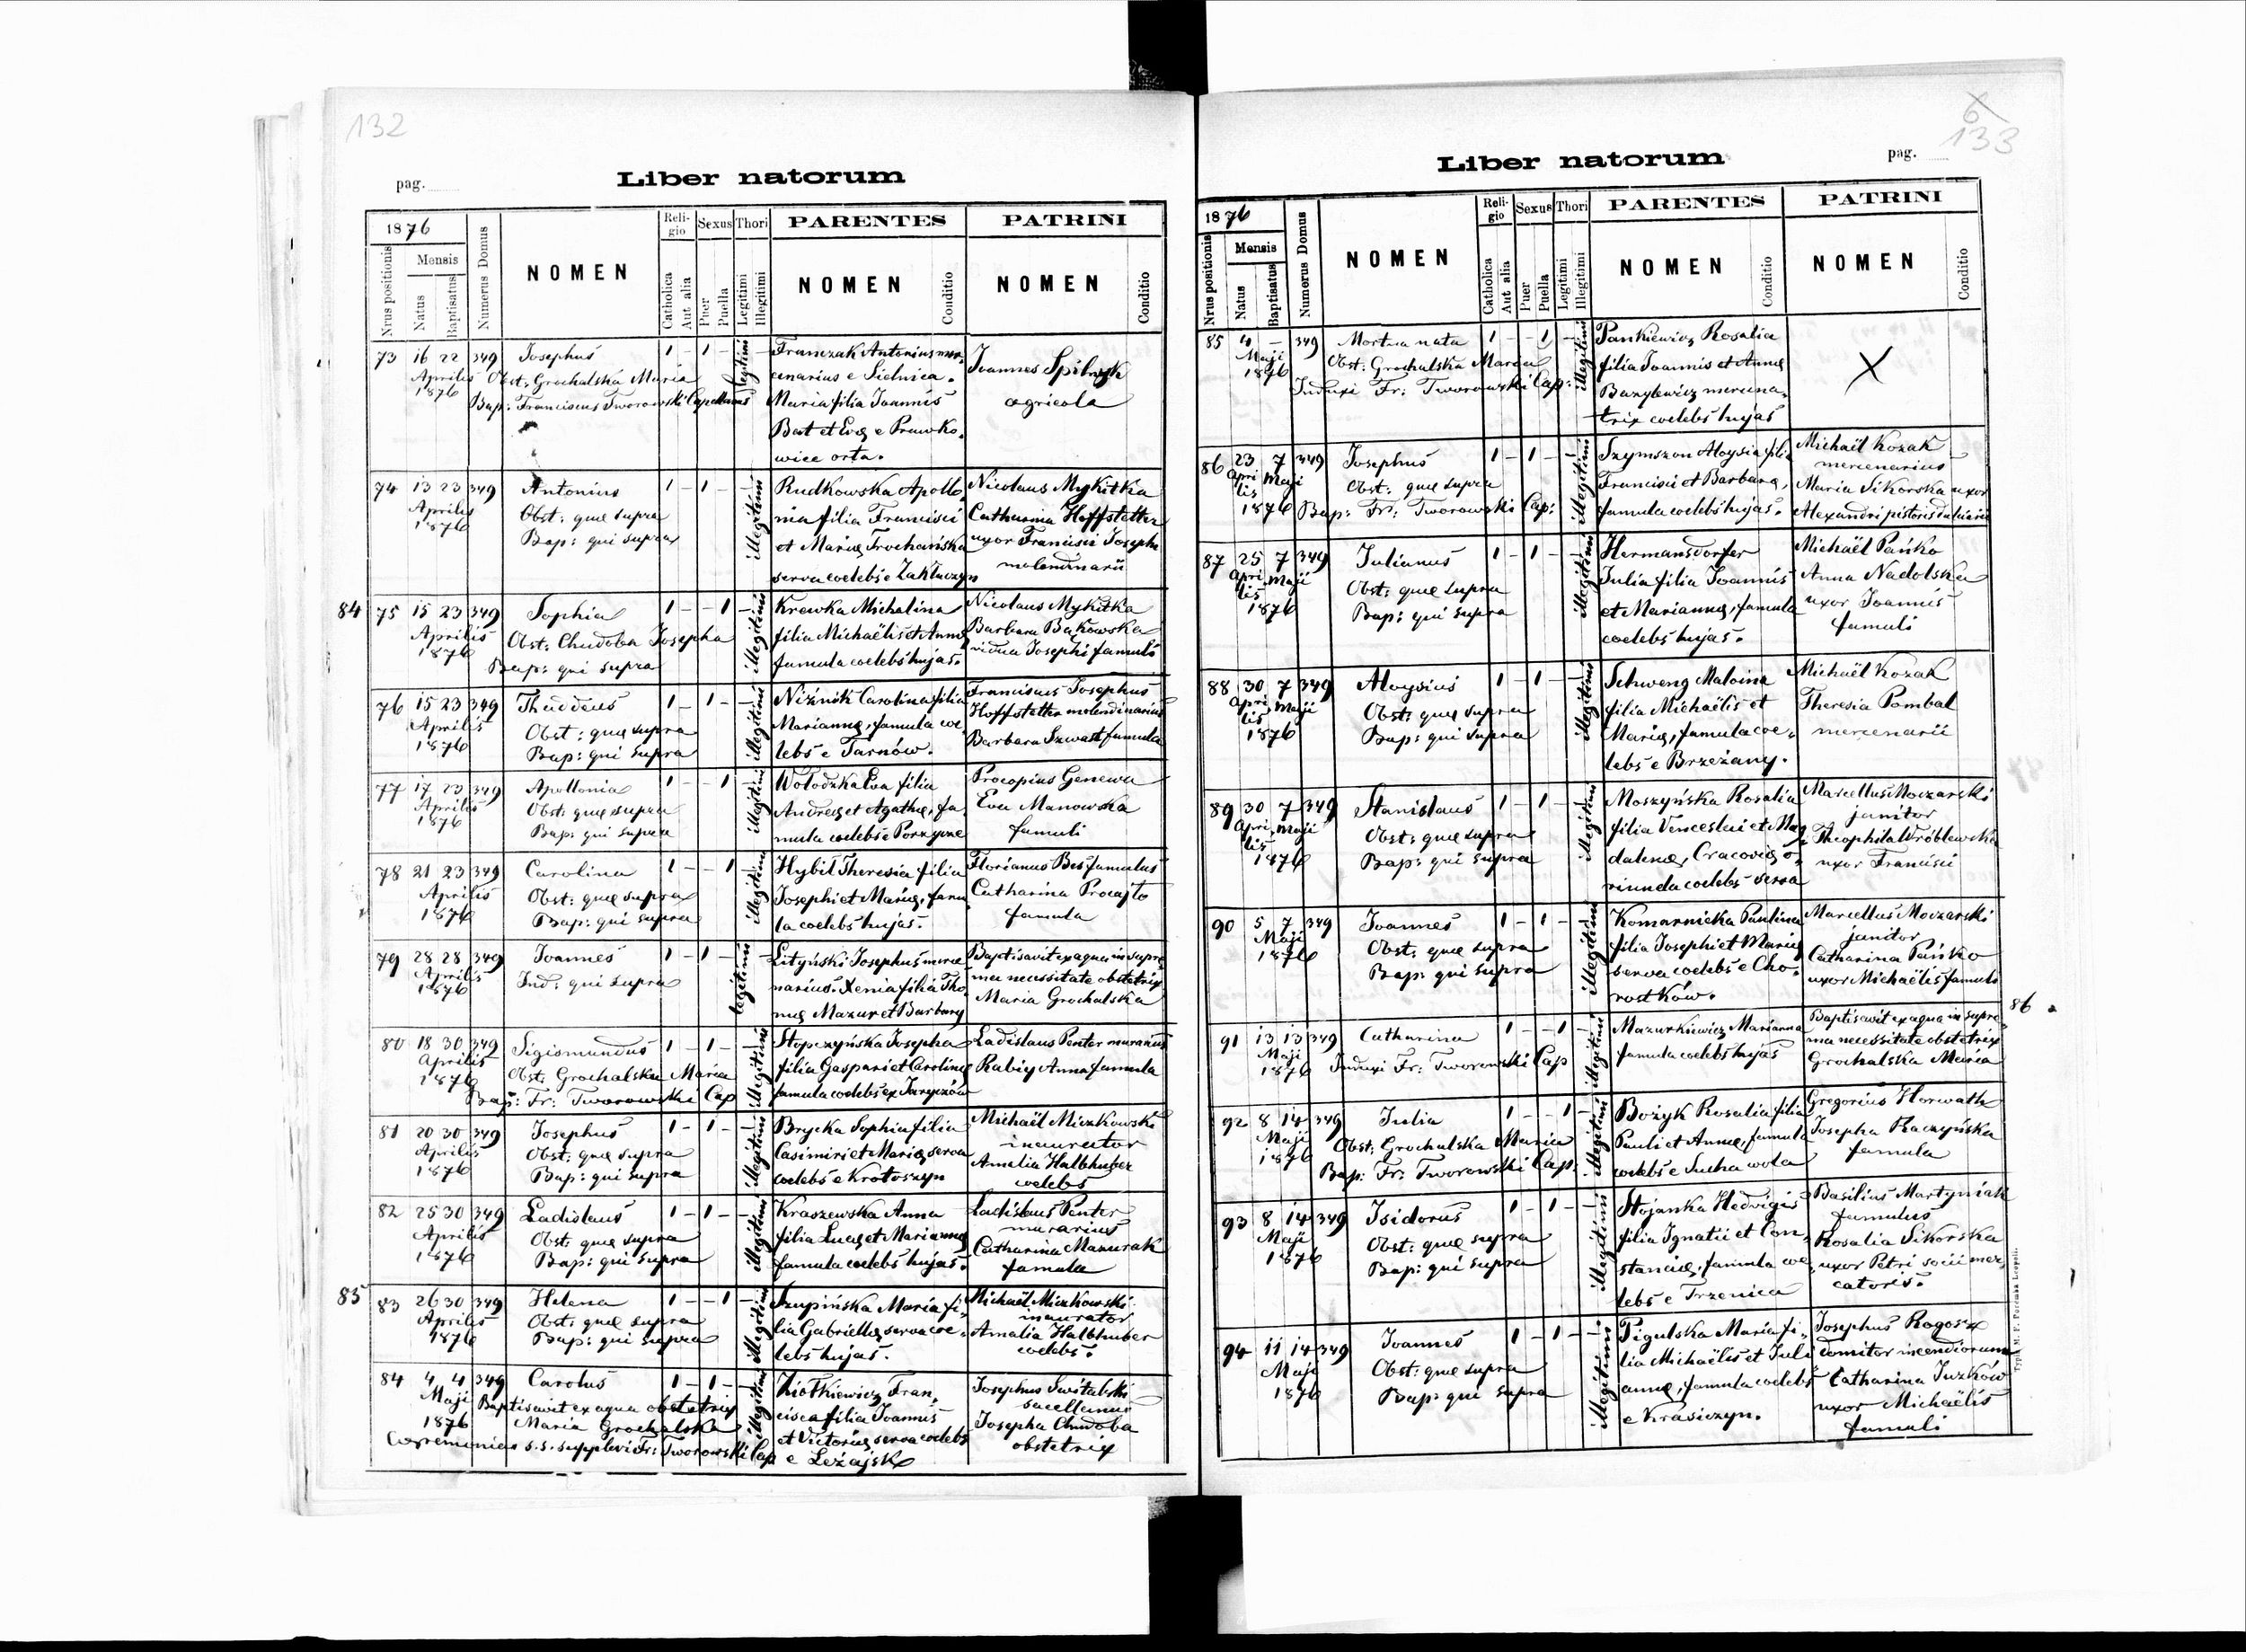 132
Liber natorum
pag.
1876
Nrus positionis
Mensis
Natus
Baptisatus
Numerus Domus
NOMEN
Religio
Catholica
Aut alia
Sexus
Puer
Puella
Thori
Legitimi
Illegitimi
PARENTES
NOMEN
Conditio
PATRINI
NOMEN
Conditio
73 16 22 349 Josephus 1 - 1 - legitimi
Aprilis
1876
Obst: Grochalska Maria
Bap: Franciscus Tworowski Capellanus
Franczak Antonius mer-
cenarius e Sielnica.
Maria filia Joannis
Bart et Evę e Prawko-
wice orta.
Joannes
agricola
74 13 23 349 Antonius 1 - 1 - illegitimi
Aprilis
1876
Obst: quę supra
Bap: qui supra
Rudkowska Apollo-
nia filia Francisci
et Marię Trochańska
serva coelebs e Zakluczyn
Nicolaus Mykitka
Catharina Hoffstetter
uxor Francisci Josephi
molendinarii
84
75 15 23 349 Sophia 1 - - 1 illegitimi
Aprilis
1876
Obst: Chudoba Josepha
Bap: qui supra
Krewka Michalina
filia Michaëlis et Annę
famula coelebs hujas.
Nicolaus Mykitka
Barbara Bakowska
vidua Josephi famuli
76 15 23 349 Thaddeus 1 - 1 - illegitimi
Aprilis
1876
Obst: quę supra
Bap: qui supra
Niźnik Carolina filia
Mariannę, famula coe-
lebs e Tarnów.
Franciscus Josephus
Hoffstetter molendinarius
Barbara Szwast famula
77 17 23 349 Apollonia 1 - - 1 illegitimi
Aprilis
1876
Obst: quę supra
Bap: qui supra
Wołodzka Eva filia
Andreę et Agathę, fa-
mula coelebs e Porzycze
Procopius Genewa
Eva Manowska
famuli
78 21 23 349 Carolina 1 - - 1 illegitimi
Aprilis
1876
Obst: quę supra
Bap: qui supra
Hybil Theresia filia
Josephi et Marię, famu-
la coelebs hujas.
Florianus Bes famulus
Catharina Procajło
famula
79 28 28 349 Joannes 1 - 1 - legitimi
Aprilis
1876
Ind. qui supra
Lityński Josephus merce-
narius. Xenia filia Tho-
mę Mazur et Barbarę
Baptisavit ex aqua in supre-
ma necessitate obstetrix
Maria Grochalska
80 18 30 349 Sigismundus 1 - 1 - illegitimi
Aprilis
1876
Obst: Grochalska Maria
Bap: Fr: Tworowski Cap
Stopczyńska Josepha
filia Gaspari et Carolinę
famula coelebs ex Jaryczów
Ladislaus Penter murarius
Rabiy Anna famula
81 20 30 349 Josephus 1 - 1 - illegitimi
Aprilis
1876
Obst: quę supra
Bap: qui supra
Brycka Sophia filia
Casimiri et Marię, serva
coelebs e Krotoszyn
Michaël Miczkowski
inaurator
Amalia Halbhuber
coelebs
82 25 30 349 Ladislaus 1 - 1 - illegitimi
Aprilis
1876
Obst: quę supra
Bap: qui supra
Kraszewska Anna
filia Lucę et Mariannę
famula coelebs hujas.
Ladislaus Penter
murarius
Catharina Mazurak
famula
85
83 26 30 349 Helena 1 - - 1 illegitimi
Aprilis
1876
Obst: quę supra
Bap: qui supra
Szupińska Maria fi-
lia Gabriellę, serva coe-
lebs hujas.
Michaël Miczkowski
inaurator
Amalia Halbhuber
coelebs.
84 4 4 349 Carolus 1 - 1 - illegitimi
Maji
1876
Baptisavit ex aqua obstetrix
Maria Grochalska
Coeremonias s.s. supplevi Fr: Tworowski Cap
Ziołkiewicz Fran-
cisca filia Joannis
et Victorię, serva coelebs
e Leżajsk
Josephus Świtalski
sacellanus
Josepha Chudoba
obstetrix
6
133
Liber natorum
pag.
1876
Nrus positionis
Mensis
Natus
Baptisatus
Numerus Domus
NOMEN
Religio
Catholica
Aut alia
Sexus
Puer
Puella
Thori
Legitimi
Illegitimi
PARENTES
NOMEN
Conditio
PATRINI
NOMEN
Conditio
85 4 - 349 Mortua nata 1 - - 1 illegitimi
Maji
1876
Obst: Grochalska Maria
Induxi Fr: Tworowski Cap:
Pankiewicz Rosalia
filia Joannis et Annę
Bazylewicz mercena-
trix coelebs hujas
X
86 23 7 349 Josephus 1 - 1 - illegitimi
Aprilis Maji
1876
Obst: quę supra
Bap: Fr: Tworowski Cap:
Szymszon Aloysia filia
Francisci et Barbarę,
famula coelebs hujas.
Michaël Kozak
mercenarius
Maria Sikorska uxor
Alexandri pistoris dulciarii
87 25 7 349 Julianus 1 - 1 - illegitimi
Aprilis Maji
1876
Obst: quę supra
Bap: qui supra
Hermansdorfer
Julia filia Joannis
et Mariannę, famula
coelebs hujas.
Michaël Pańko
Anna Nadolska
uxor Joannis
famuli
88 30 7 349 Aloysius 1 - 1 - illegitimi
Aprilis Maji
1876
Obst: quę supra
Bap: qui supra
Schweng Malvina
filia Michaëlis et
Marię, famula coe-
lebs e Brzeżany.
Michaël Kozak
Theresia Pombal
mercenarii
89 30 7 349 Stanislaus 1 - 1 - illegitimi
Aprilis Maji
1876
Obst: quę supra
Bap: qui supra
Moszyńska Rosalia
filia Venceslai et Mag-
dalenę, Cracovię o-
riunda coelebs serva
Marcellus Moczarski
janitor
Theophila Wróblewska
uxor Francisci
90 5 7 349 Joannes 1 - 1 - illegitimi
Maji
1876
Obst: quę supra
Bap: qui supra
Komarnicka Paulina
filia Josephi et Marię
serva coelebs e Cho-
rostków.
Marcellus Moczarski
janitor
Catharina Pańko
uxor Michaëlis famuli
86
91 13 13 349 Catharina 1 - - 1 illegitimi
Maji
1876
Induxi Fr: Tworowski Cap
Mazurkiewicz Marianna
famula coelebs hujas
Baptisavit ex aqua in supre-
ma necessitate obstetrix
Grochalska Maria
92 8 14 349 Julia 1 - - 1 illegitimi
Maji
1876
Obst: Grochalska Maria
Bap: Fr: Tworowski Cap:
Bożyk Rosalia filia
Pauli et Annę, famula
coelebs e Sucha wola
Gregorius Horwath
Josepha Raczyńska
famula
93 8 14 349 Isidorus 1 - 1 - illegitimi
Maji
1876
Obst: quę supra
Bap: qui supra
Stojanka Hedvigis
filia Ignatii et Con-
stancię, famula coe-
lebs e Trzenica
Basilius Martyniak
famulus
Rosalia Sikorska
uxor Petri socii mer-
catoris.
94 11 14 349 Joannes 1 - 1 - illegitimi
Maji
1876
Obst: quę supra
Bap: qui supra
Pigulska Maria fi-
lia Michaëlis et Juli-
annę, famula coelebs
e Krasiczyn.
Josephus Rogosz
domitor incendiorum
Catharina Juzków
uxor Michaëlis
famuli
Typis M. F. Poremba Leopoli.